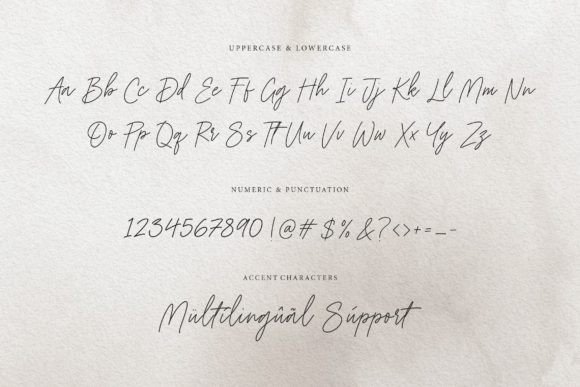 UPPERCASE & LOWERCASE
Aa Bb Cc Dd Ee Ff Gg Hh Ii Jj Kk Ll Mm Nn
Oo Pp Qq Rr Ss Tt Uu Vv Ww Xx Yy Zz
NUMERIC & PUNCTUATION
1234567890|@#$%&?<>+=_-
ACCENT CHARACTERS
Mültilingûãl Súpport